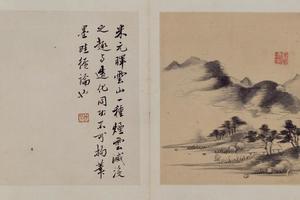 米元暉雲山一種煙雲滅沒
之趣與造化同不可拘筆
墨畦徑論也